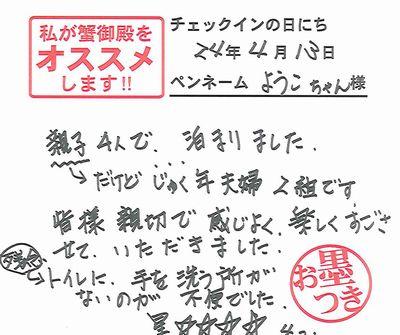 私が蟹御殿を
オススメ
します!!
チェックインの日にち
24年4月13日
ペンネーム ようこちゃん様
親子4人で、泊まりました。
→だけどじゅく年夫婦2組です
皆様親切で感じよく、楽しくすごさ
せて、いただきました。
→トイレに、手を洗う所が
ないのが不便でした。
星☆☆☆☆
黒墨
おつき